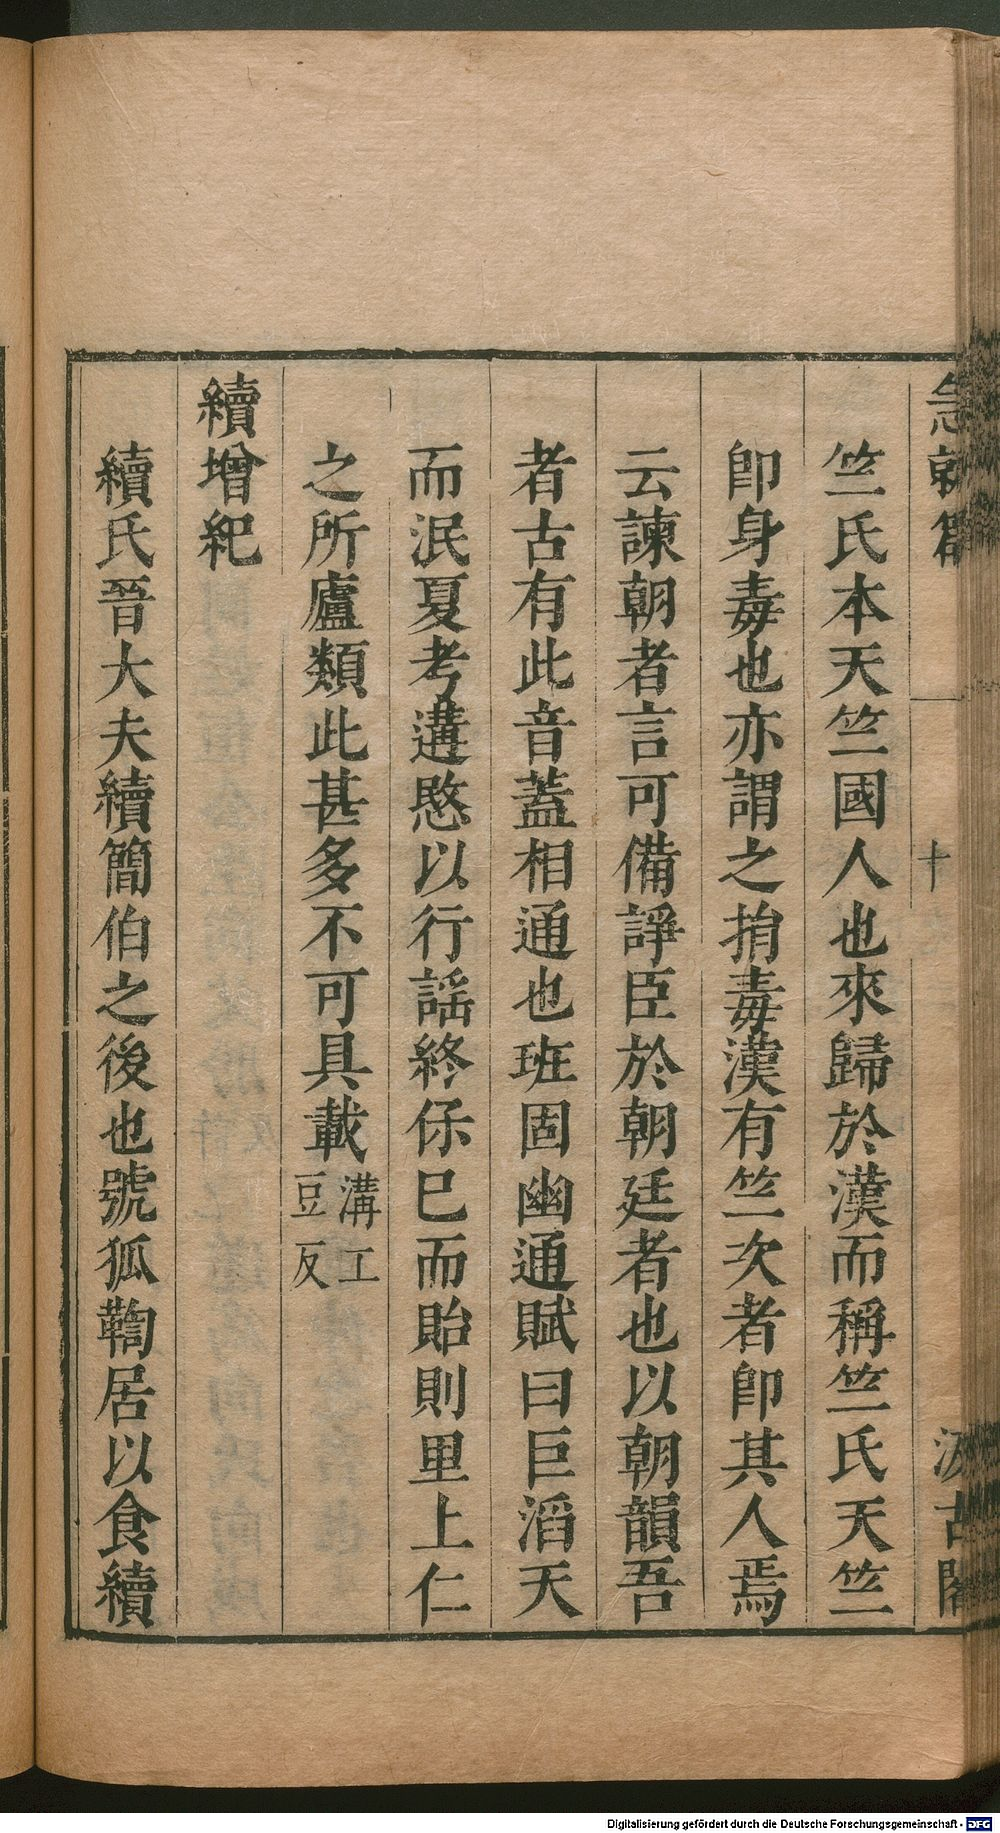 急就篇 十 汲古閣
竺氏本天竺國人也來歸於漢而稱竺氏天竺
卽身毒也亦謂之捐毒漢有竺次者卽其人焉
云諫朝者言可備諍臣於朝廷者也以朝韻吾
者古有此音蓋相通也班固幽通賦曰巨滔天
而泯夏考遘愍以行謡終保己而貽則里上仁
之所廬類此甚多不可具載溝工
豆反
續增紀
續氏晉大夫續簡伯之後也號狐鞫居以食續
Digitalisierung gefördert durch die Deutsche Forschungsgemeinschaft - DFG